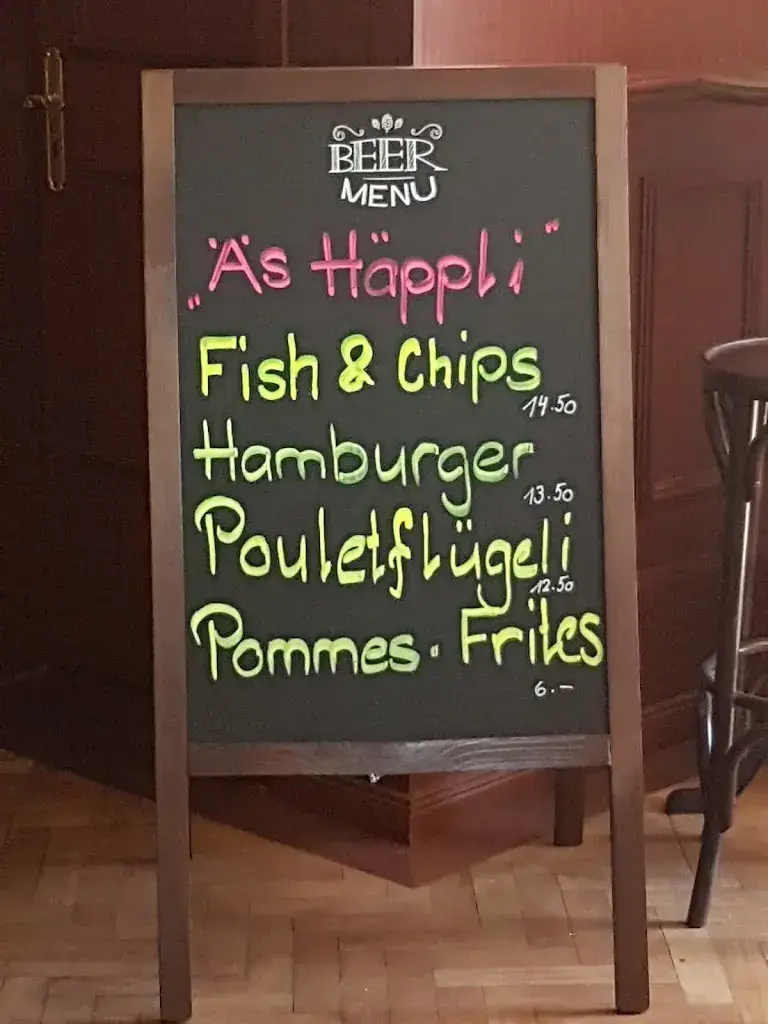 BEER
MENU
„Äs Häppli"
Fish & Chips
14.50
Hamburger
13.50
Pouletflügeli
12.50
Pommes - Frites
6.—